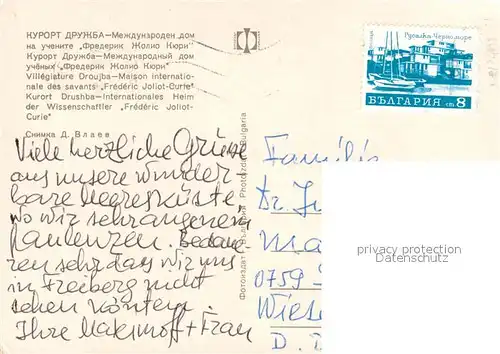 КУРОРТ ДРУЖБА—Международен дом
на учените „Фредерик Жолио Кюри"
Курорт Дружба—Международный дом
учёных „Фредерик Жолио Кюри"
Villégiature Droujba—Maison internatio-
nale des savants „Frédéric Joliot-Curie"
Kurort Drushba—Internationales Heim
der Wissenschaftler „Frédéric Joliot-
Curie"
Снимка Д. Влаев
Viele herzliche Grüsse
aus unsere wunder
bare Meeresküste
wo wir sehr angenehm
faulenzen. Bedaue
ren sehr das wir uns
in Freiberg nicht
sehen könten.
Ihre + Frau
Фотоиздат България Photoizdat Bulgaria
България
Русалка-Черноморие
БЪЛГАРИЯ ст 8
Familie
Dr.
0759
D.
privacy protection
Datenschutz